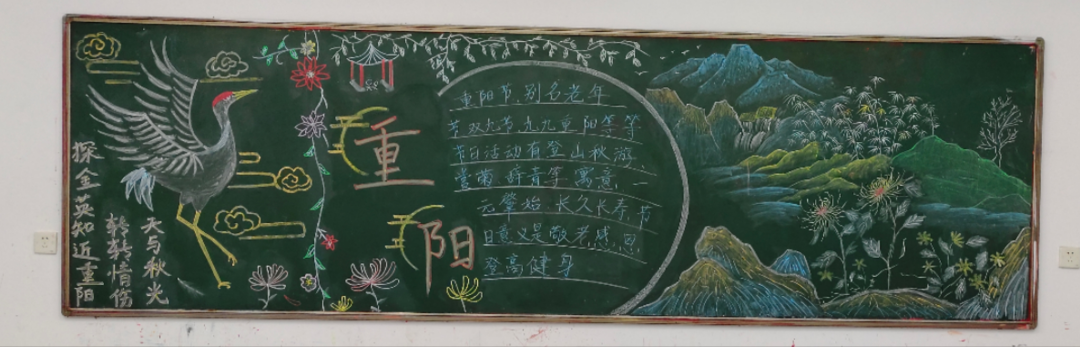 重阳
重阳节,别名老年
节双九节,九九重阳等等
节日活动有登山秋游
赏菊,辞青等,寓意一
元肇始,长久长寿,节
日意义是敬老感恩
登高健身
天与秋光
转转情伤
探金英知近重阳